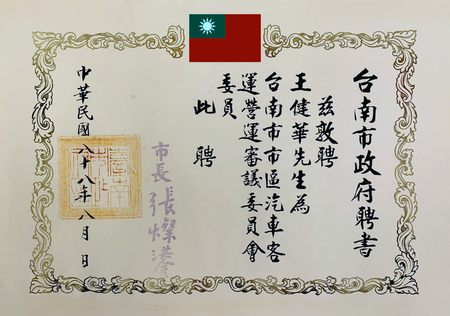 台南市政府聘書
茲敦聘
王健華先生為
台南市市區汽車客
運營運審議委員會
委員
此聘
市長 張燦鍙
中華民國八十八年八月 日